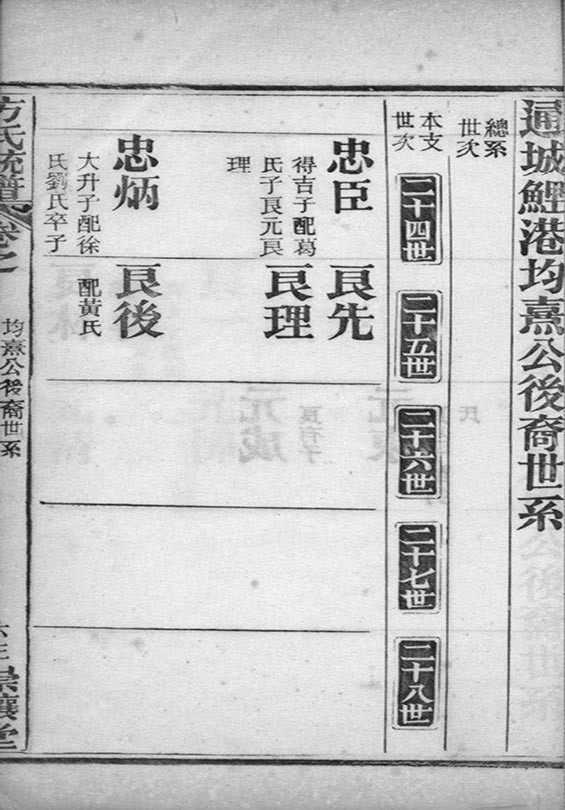 通城鯉港均熹公後裔世系
總系
世次
本支
世次
二十四世
二十五世
二十六世
二十七世
二十八世
忠臣
得吉子配葛
氏子良元良
理
良先
良理
忠炳
大升子配徐
氏劉氏卒子
良後
配黃氏
方氏統譜
卷之
均熹公後裔世系